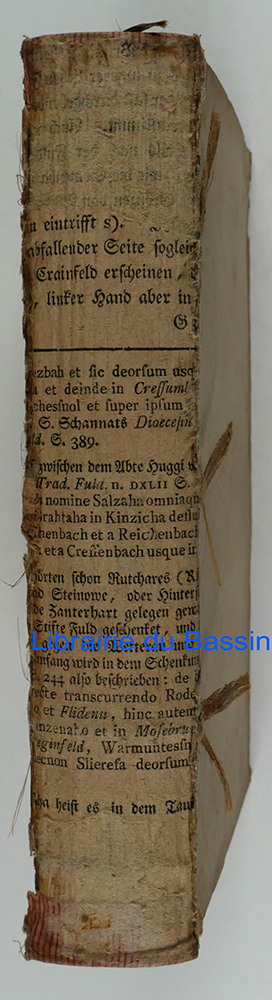 eintrifft s).
abfallender Seite sogleic
Crainfeld erscheinen,
linker Hand aber in
G
zbah et sic deorsum usq
et deinde in Cressuml
chessnol et super ipsum
S. Schannats Dioecesin
S. 389.
zwischen dem Abte Huggi
Trad. Fuld. n. DXLII S.
nomine Salzaha omniaqu
rahtaha in Kinzicha deflu
chenbach et a Reichenbach
et a Crellenbach usque in
hörten schon Rutchares (R
Steinowe, oder Hinterst
de Zanterhart gelegen gew
Stifte Fuld geschenket, und
Librairie du Bassin
mfang wird in dem Schenkun
244 also beschrieben: de
recte transcurrendo Rode
et Flidenu, hinc autem
inzenaho et in Mosebrug
eginfeld, Warmuntessn
necnon Slieresa deorsum
ha heist es in dem Tau